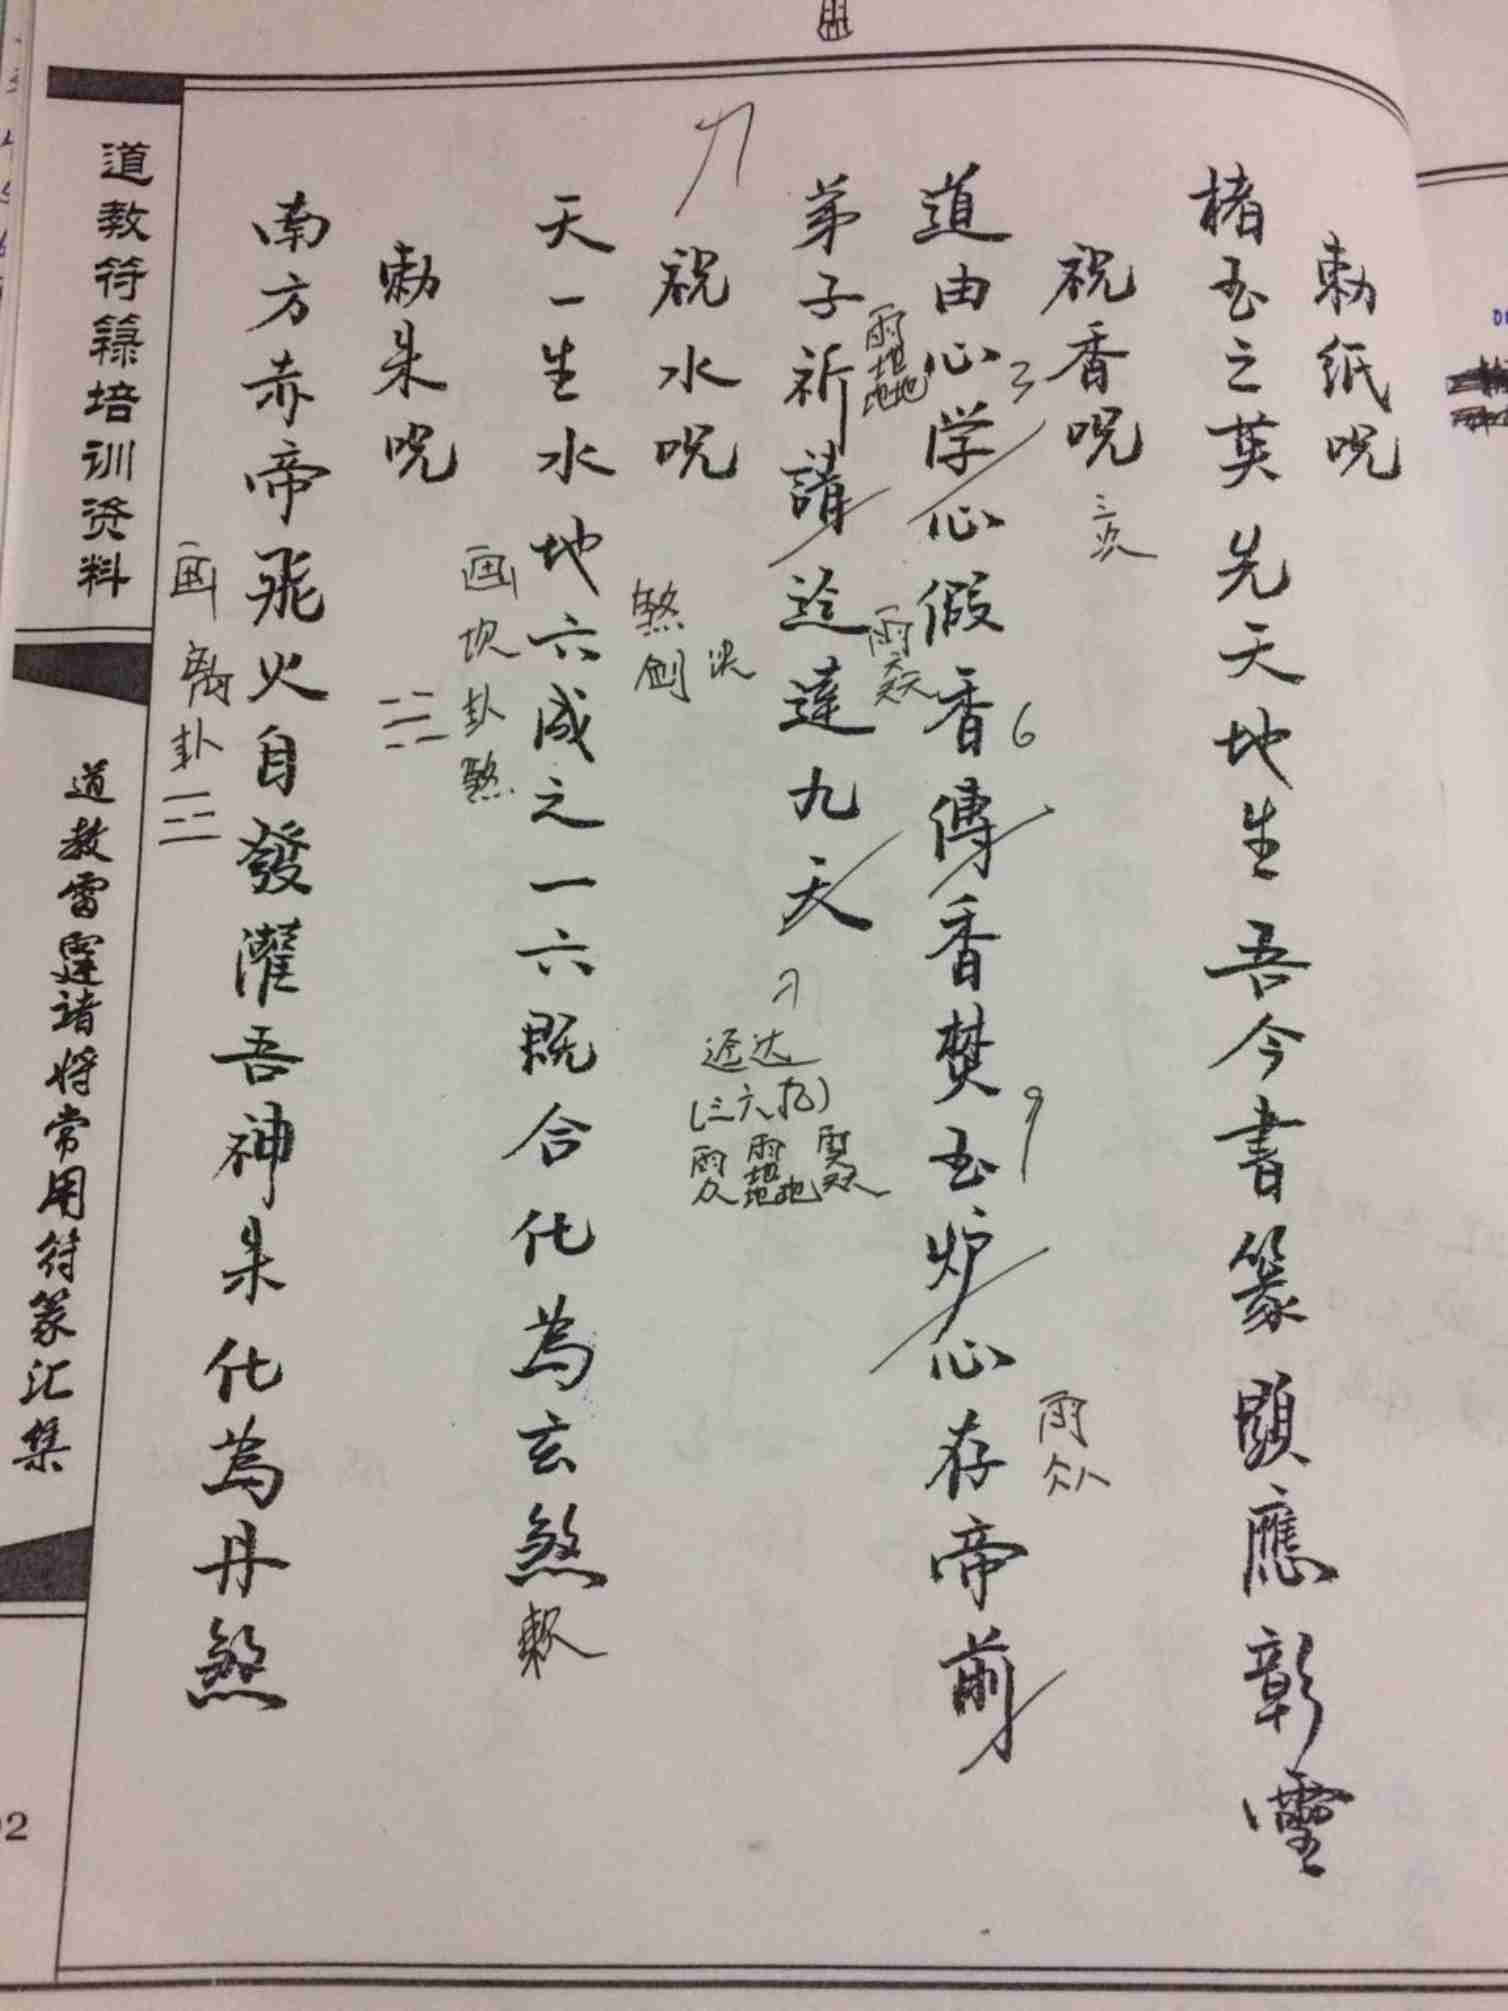 勅纸咒
楮玉之英先天地生吾今書篆顕應彰靈
祝香咒
三次
道由心学心假香傳香焚玉炉心存帝前
3
6
9
弟子祈請迳達九天
迳达
(三六九)
祝水咒
煞
剑诀
天一生水地六成之一六既合化為玄煞
勅
画坎卦煞
勅朱咒
南方赤帝飛火自發灌吾神朱化為丹煞
画离卦
道教符箓培训资料
道教雷霆诸将常用符篆汇集
02